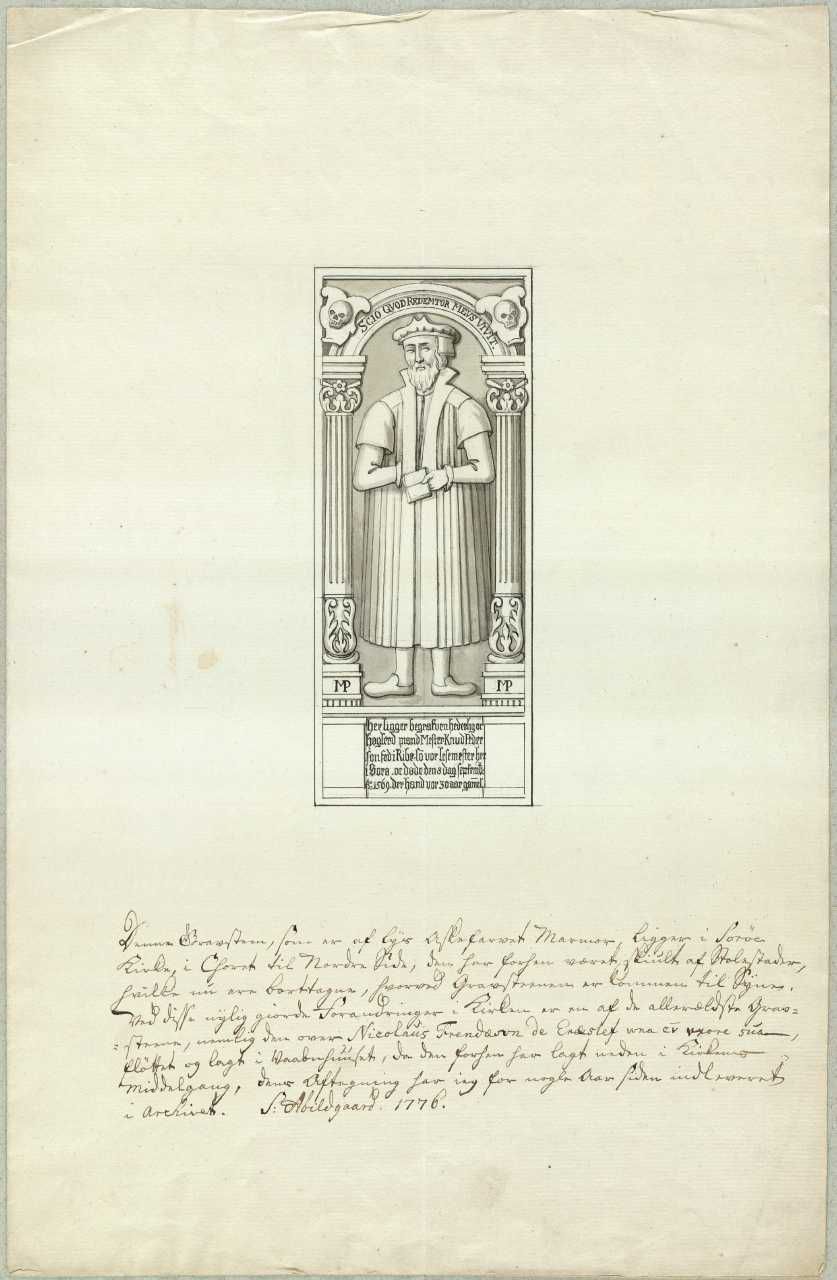 SCIO QVOD REDEMTOR MEVS VIVIT.
MP MP
Her ligger begrafven hederlig oc
høglerd mand Mester Knud Peder
son fød i Ribe so vor Lesemester her
i Sora, oc døde den 8 dag septemb.
A: 1569. der hand vor 30 aar gamel.
Denne Gravsteen, som er af lys Askefarvet Marmor, ligger i Sorøe
Kirke, i Choret til Nordre Side, den har forhen været skiult af Stolestader,
hvilke nu ere borttagne, hvorved Gravsteenen er kommen til Syne.
Ved disse nylig giorde Forandringer i Kirken er en af de allerældste Grav-
-steene, nemlig den over Nicolaus de una cū uxore sua,
fløttet og lagt i Vaabenhuuset, da den forhen har lagt neden i Kirkens
Middelgang, dens Aftegning har ieg for nogle Aar siden indleveret
i Archivet. S: Abildgaard. 1776.